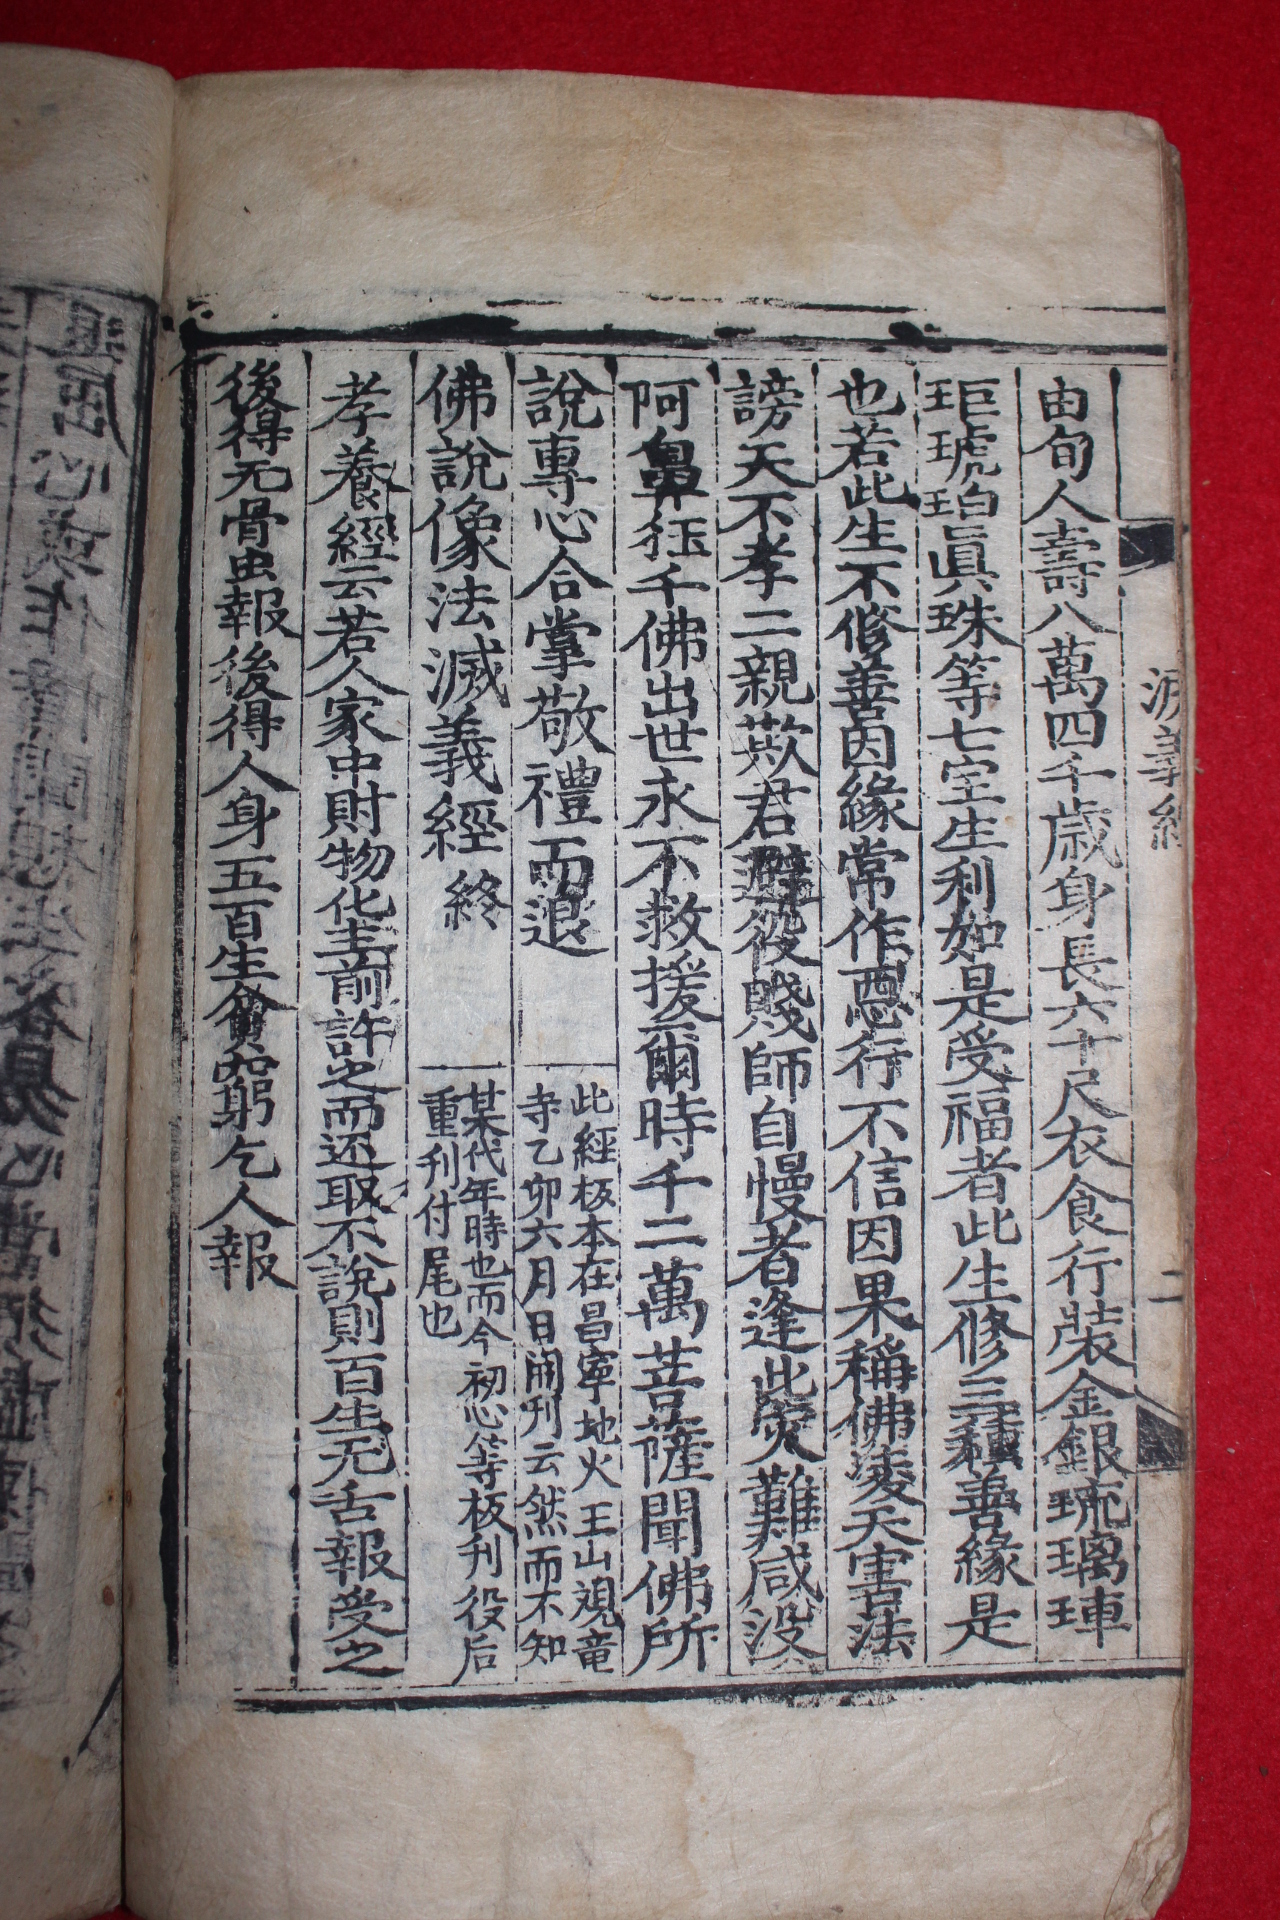 滅義經
二
由旬人壽八萬四千歲身長六十尺衣食行裝金銀琉璃車
琚琥珀眞珠等七宝生利如是受福者此生修三種善緣是
也若此生不修善因緣常作惡行不信因果稱佛凌天害法
謗天不孝二親欺君避役賤師自慢者逢此灾難咸没
阿鼻獄千佛出世永不救援爾時千二萬菩薩聞佛所
說專心合掌敬禮而退
此經板本在昌寧地火王山觀竜
寺乙卯六月日開刊云然而不知
佛說像法滅義經終
某代年時也而今初心等板刊役后
重刊付尾也
孝養經云若人家中財物化主前許之而还取不說則百生无舌報受之
後得无骨虫報後得人身五百生貧窮乞人報